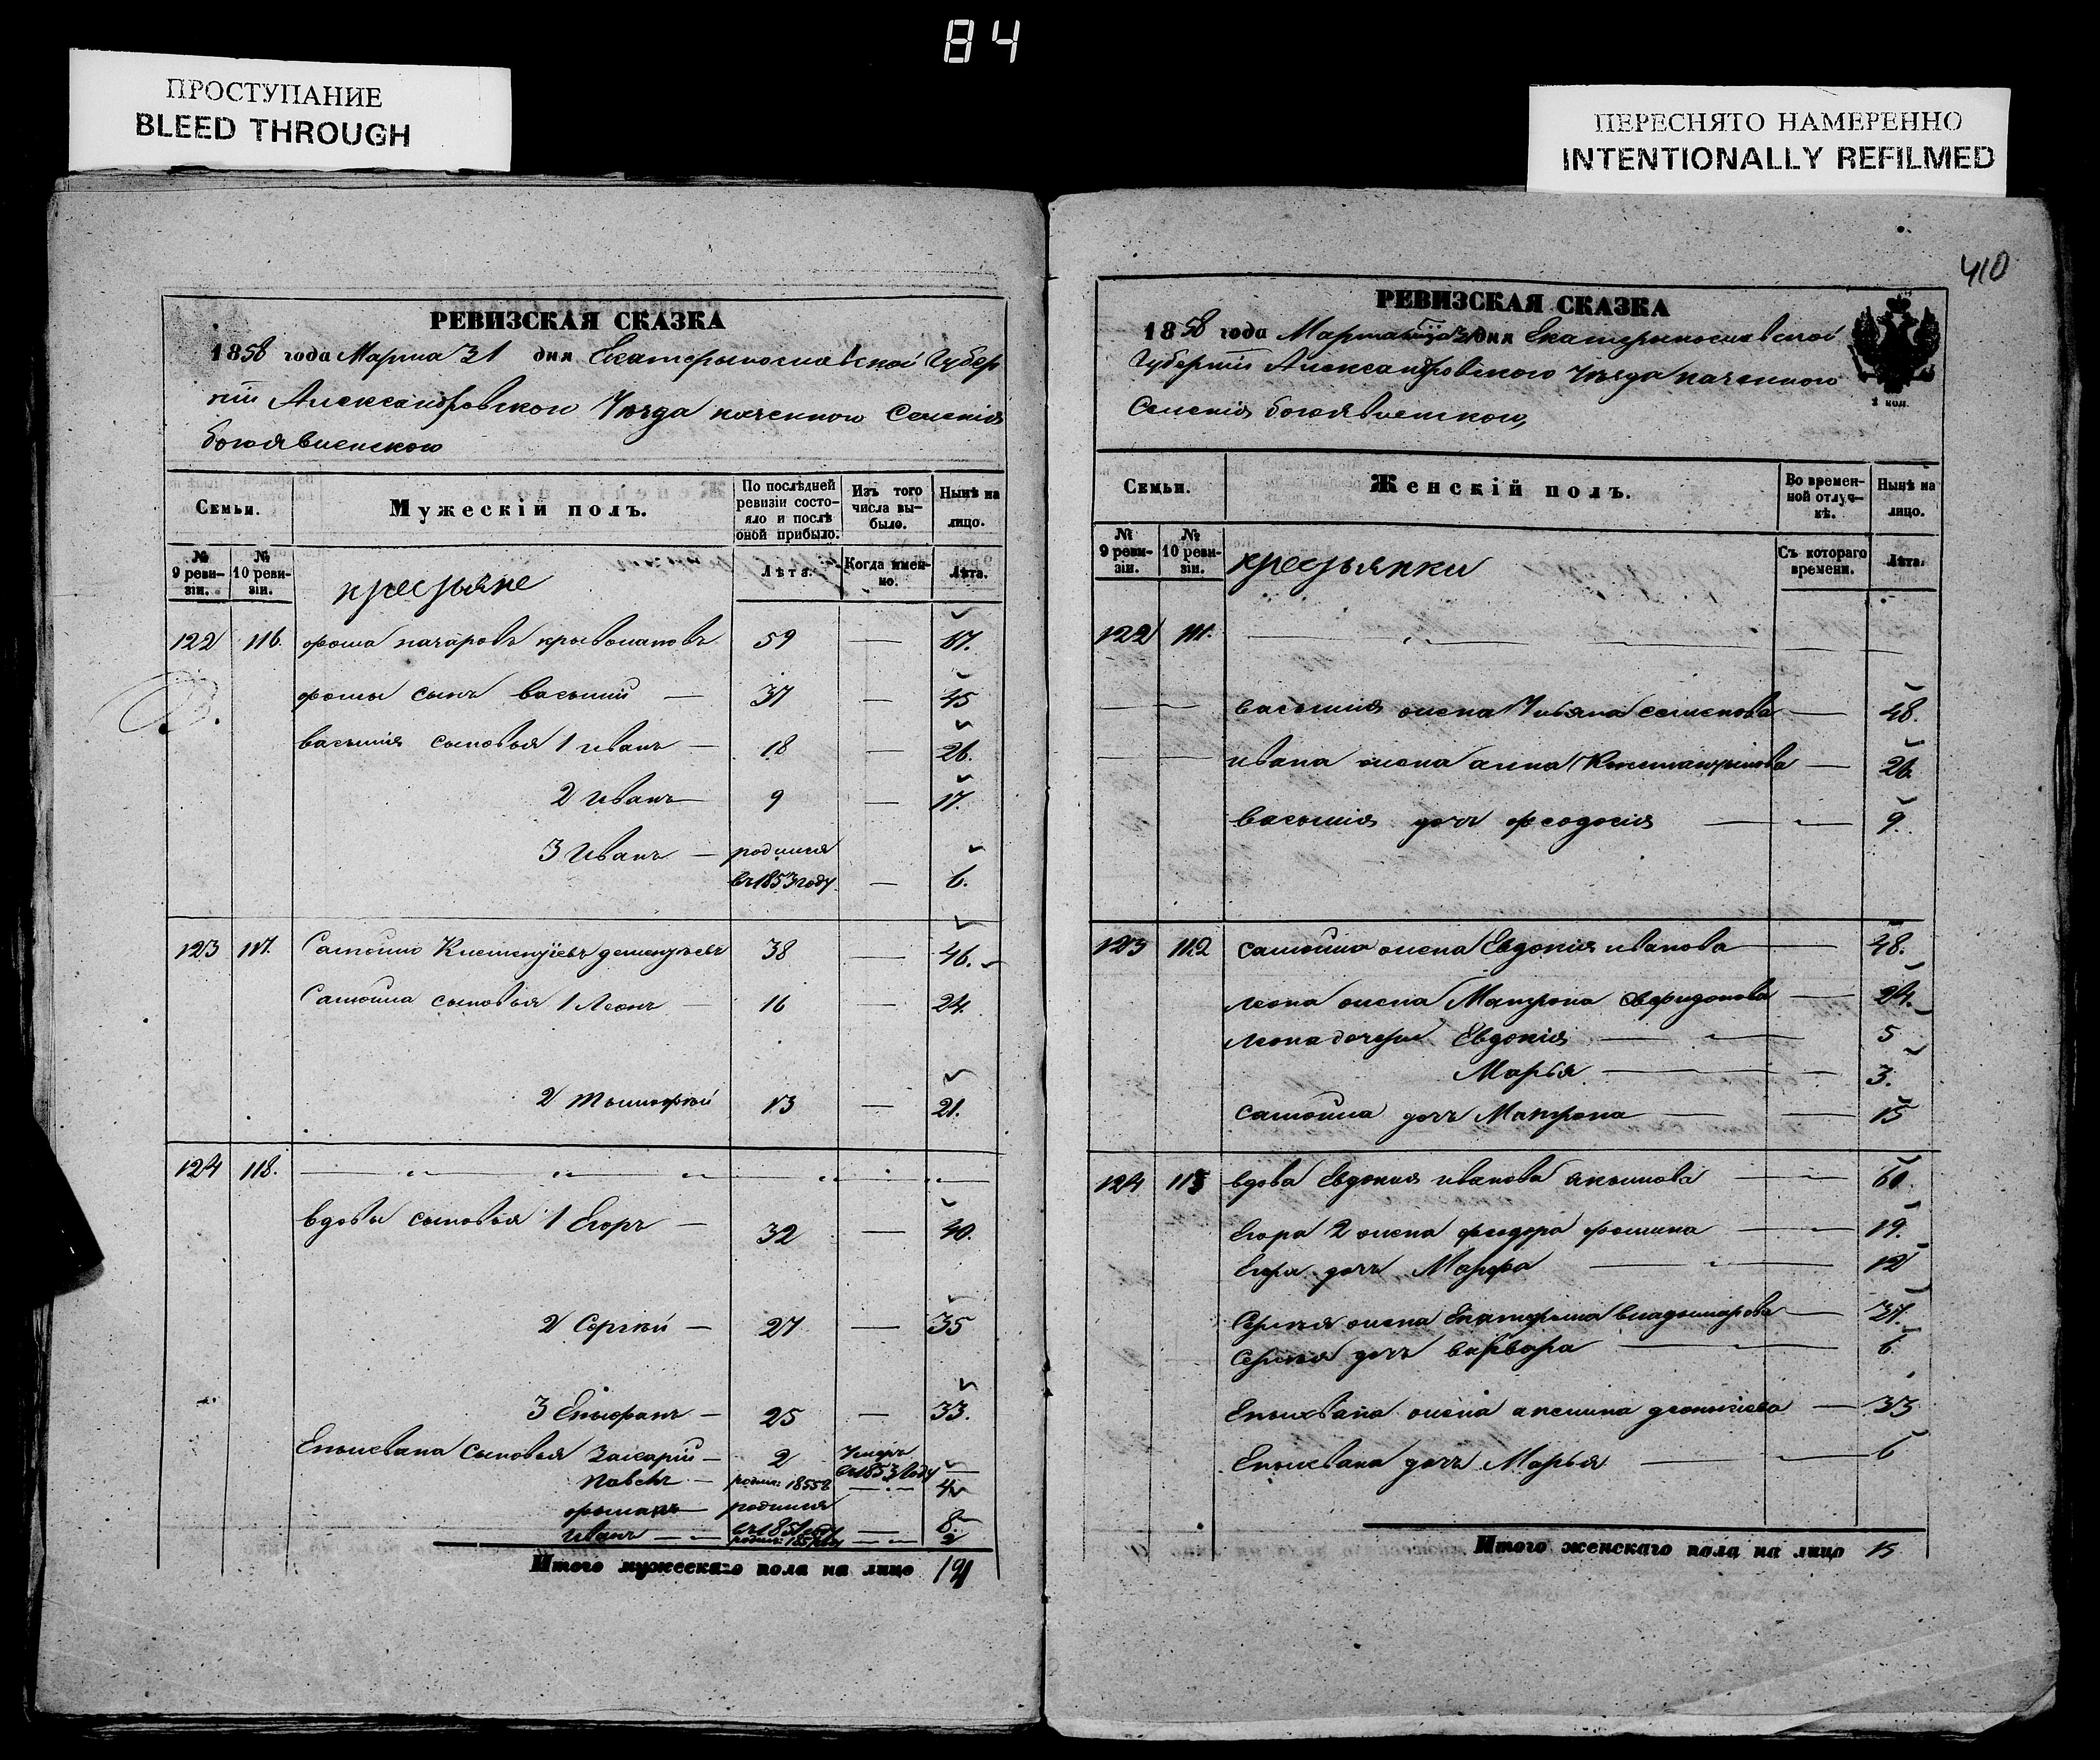 84
ПРОСТУПАНИЕ
BLEED THROUGH
ПЕРЕСНЯТО НАМЕРЕННО
INTENTIONALLY REFILMED
РЕВИЗСКАЯ СКАЗКА
1858 года Марта 31 дня Екатерынославской Губер
ніи Александровского Уезда казенного Селенія
богоявленского
Семьи.
Мужескій полъ.
По послѣдней ревизіи состояло и послѣ оной прибыло.
Изъ того числа выбыло.
Нынѣ на лицо.
№ 9 ревизіи.
№ 10 ревизіи.
крестьяне
Лѣта.
Когда именно.
Лѣта.
122 116. фома назаровъ 59 — 67.
фомы сынъ васылий — 37 — 45
васылия сыновья 1 иванъ — 18 — 26.
2 иванъ — 9 — 17.
3 иванъ — родился
въ 1853 году — 6.
123 117. Самойло дементьевъ 38 — 46.
Самойла сыновья 1 Леонъ — 16 — 24.
2 тымофей 13 — 21.
124 118.
вдовы сыновья 1 Егоръ — 32 — 40.
2 Сергей — 27 — 35
3 Епыфанъ — 25 — 33.
сыновья Захарий — 2 Умеръ въ 1853 году
Павелъ — родил: 1855 4
романъ родился
иванъ — 8. 2
Итого мужескаго пола на лицо
410
РЕВИЗСКАЯ СКАЗКА
1858 года Марта 31 дня Екатерынославской
Губерніи Александровского Уезда казенного
Селенія богоявленского,
2 коп.
Семьи.
Женскій полъ.
Во временной отлучкѣ.
Нынѣ на лицо.
№ 9 ревизіи.
№ 10 ревизіи.
крестьянки
Съ котораго времени.
Лѣта.
122 111.
васылия жена Ульяна семенова — 48.
ивана жена анна Константынова — 26.
васылия дочъ феодосия — 9.
123 112 самойла жена Евдокия иванова — 48.
леона жена Матрона свиридонова — 24.
леона дочеры Евдокия — 5
Марья — 3.
самойла дочъ Матрона — 15
124 113 вдова Евдокия иванова акымова — 60.
Егора 2 жена феодора фомина — 19.
Егора дочъ Марфа — 12
Сергея жена Екатерына владымирова — 37.
Сергея дочъ варвара — 6
жена аксинья — 33
дочъ Марья — 6
Итого женскаго пола на лицо 15